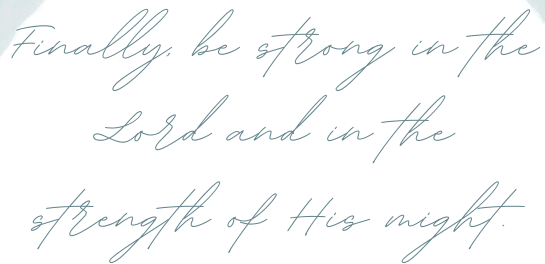 Finally, be strong in the
Lord and in the
strength of His might.